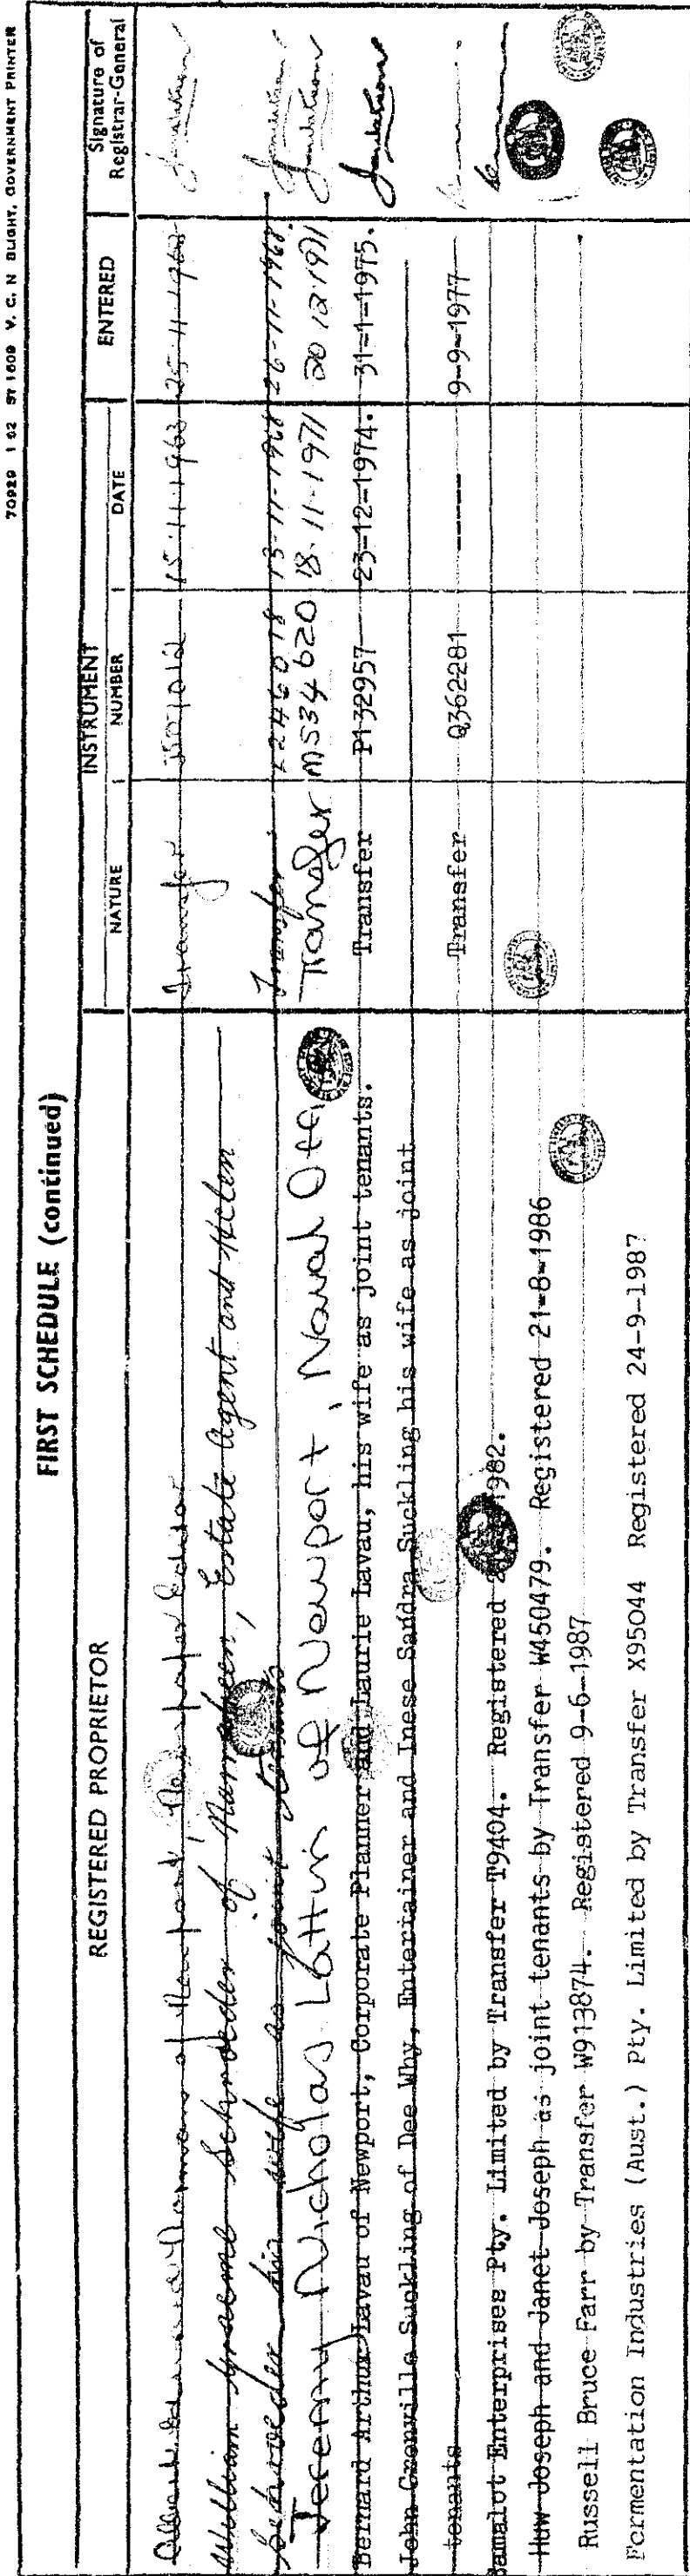 70929 1 62 ST 1609 V. C. N BLIGHT, GOVERNMENT PRINTER
FIRST SCHEDULE (continued)
REGISTERED PROPRIETOR
INSTRUMENT
NATURE
NUMBER
DATE
ENTERED
Signature of
Registrar-General
of Newport, Newspaper Editor Transfer 15-11-1963 25-11-1963
William Graeme Schroeder of Narrabeen, Estate Agent and Helen
Schroeder his wife as joint tenants Transfer 13-11-1968 26-11-1968.
Jeremy Nicholas Lattin of Newport, Naval Transfer M534620 18-11-1971 20 12 1971
Bernard Arthur Lavau of Newport, Corporate Planner and Laurie Lavau, his wife as joint tenants. Transfer P132957 23-12-1974. 31-1-1975.
John Grenville Suckling of Dee Why, Entertainer and Inese Sandra Suckling his wife as joint
tenants Transfer Q362281 9-9-1977
Bamalot Enterprises Pty. Limited by Transfer T9404. Registered 1982.
Huw Joseph and Janet Joseph as joint tenants by Transfer W450479. Registered 21-8-1986
Russell Bruce Farr by Transfer W913874. Registered 9-6-1987
Fermentation Industries (Aust.) Pty. Limited by Transfer X95044 Registered 24-9-1987